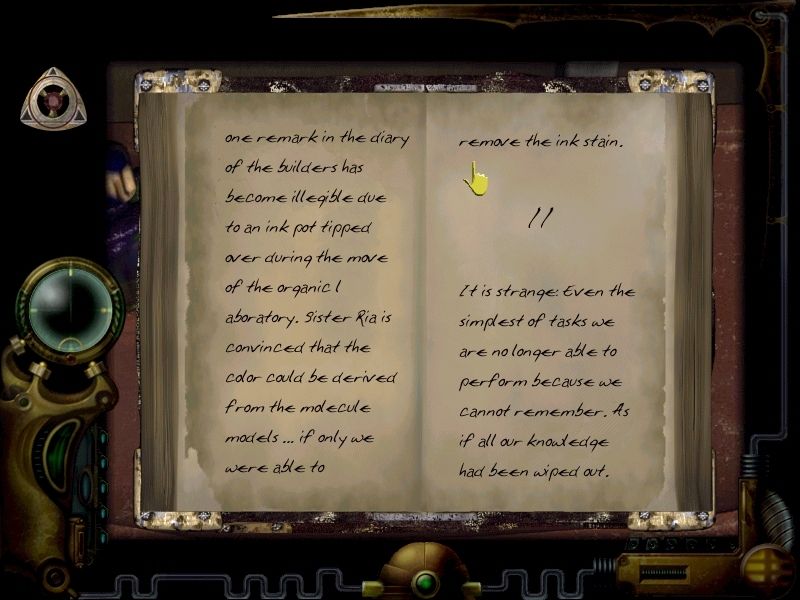 one remark in the diary
of the builders has
become illegible due
to an ink pot tipped
over during the move
of the organic l
aboratory. Sister Ria is
convinced that the
color could be derived
from the molecule
models ... if only we
were able to
remove the ink stain.
11
It is strange: Even the
simplest of tasks we
are no longer able to
perform because we
cannot remember. As
if all our knowledge
had been wiped out.